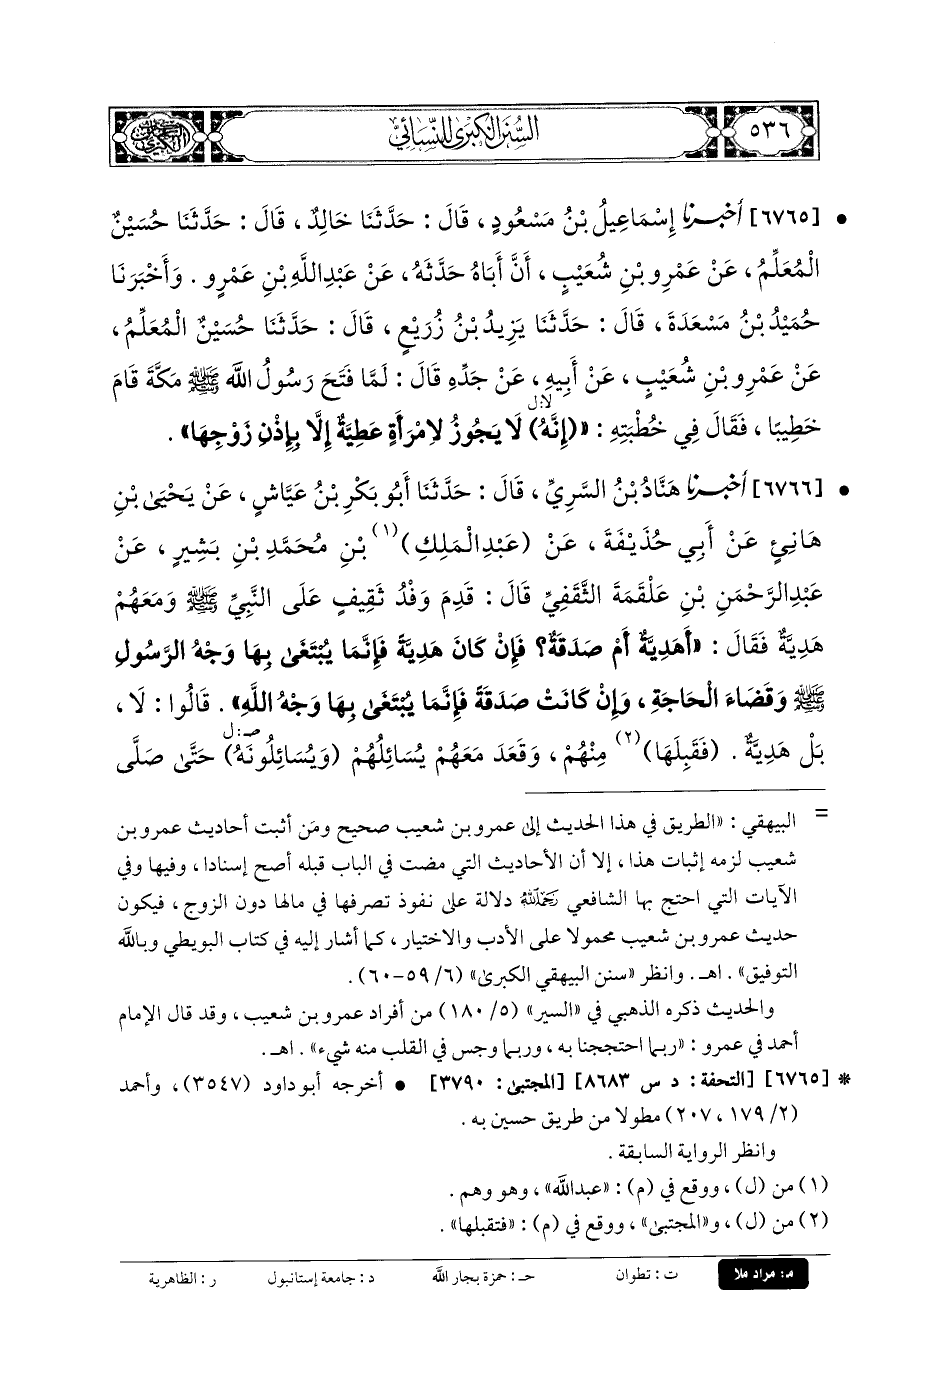 ٥٣٦
السنن الكبرى للنسائي
• [٦٧٦٥] أخبرنا إِسْمَاعِيلُ بْنُ مَسْعُودٍ، قَالَ: حَدَّثَنَا خَالِدٌ، قَالَ: حَدَّثَنَا حُسَيْنٌ
الْمُعَلِّمُ، عَنْ عَمْرِو بْنِ شُعَيْبٍ، أَنَّ أَبَاهُ حَدَّثَهُ، عَنْ عَبْدِاللَّهِ بْنِ عَمْرٍو. وَأَخْبَرَنَا
حُمَيْدُ بْنُ مَسْعَدَةَ، قَالَ: حَدَّثَنَا يَزِيدُ بْنُ زُرَيْعٍ، قَالَ: حَدَّثَنَا حُسَيْنٌ الْمُعَلِّمُ،
عَنْ عَمْرِو بْنِ شُعَيْبٍ، عَنْ أَبِيهِ، عَنْ جَدِّهِ قَالَ: لَمَّا فَتَحَ رَسُولُ اللَّهِ ﷺ مَكَّةَ قَامَ
لا: ل
خَطِيبًا، فَقَالَ فِي خُطْبَتِهِ: «(إِنَّهُ) لَا يَجُوزُ لِامْرَأَةٍ عَطِيَّةٌ إِلَّا بِإِذْنِ زَوْجِهَا».
• [٦٧٦٦] أخبرنا هَنَّادُ بْنُ السَّرِيِّ، قَالَ: حَدَّثَنَا أَبُو بَكْرِ بْنُ عَيَّاشٍ، عَنْ يَحْيَىٰ بْنِ
هَانِئٍ عَنْ أَبِي حُذَيْفَةَ، عَنْ (عَبْدِ الْمَلِكِ)(١) بْنِ مُحَمَّدِ بْنِ بَشِيرٍ، عَنْ
عَبْدِالرَّحْمَنِ بْنِ عَلْقَمَةَ الثَّقَفِيِّ قَالَ: قَدِمَ وَفْدُ ثَقِيفٍ عَلَى النَّبِيِّ ﷺ وَمَعَهُمْ
هَدِيَّةٌ فَقَالَ: «أَهَدِيَّةٌ أَمْ صَدَقَةٌ؟ فَإِنْ كَانَ هَدِيَّةً فَإِنَّمَا يُبْتَغَىٰ بِهَا وَجْهُ الرَّسُولِ
ﷺ وَقَضَاءَ الْحَاجَةِ، وَإِنْ كَانَتْ صَدَقَةً فَإِنَّمَا يُبْتَغَىٰ بِهَا وَجْهُ اللَّهِ». قَالُوا: لَا،
صـ: ل
بَلْ هَدِيَّةٌ. (فَقَبِلَهَا)(٢) مِنْهُمْ، وَقَعَدَ مَعَهُمْ يُسَائِلُهُمْ (وَيُسَائِلُونَهُ) حَتَّىٰ صَلَّى
= البيهقي: «الطريق في هذا الحديث إلى عمرو بن شعيب صحيح ومَن أثبت أحاديث عمرو بن
شعيب لزمه إثبات هذا، إلا أن الأحاديث التي مضت في الباب قبله أصح إسنادا، وفيها وفي
الآيات التي احتج بها الشافعي رحمه الله دلالة على نفوذ تصرفها في مالها دون الزوج، فيكون
حديث عمرو بن شعيب محمولا على الأدب والاختيار، كما أشار إليه في كتاب البويطي وبالله
التوفيق». اهـ. وانظر «سنن البيهقي الكبرى» (٦/ ٥٩-٦٠).
والحديث ذكره الذهبي في «السير» (٥/ ١٨٠) من أفراد عمرو بن شعيب، وقد قال الإمام
أحمد في عمرو: «ربما احتججنا به، وربما وجس في القلب منه شيء». اهـ.
* [٦٧٦٥] [التحفة: د س ٨٦٨٣] [المجتبى: ٣٧٩٠] • أخرجه أبو داود (٣٥٤٧)، وأحمد
(٢/ ١٧٩، ٢٠٧) مطولا من طريق حسين به.
وانظر الرواية السابقة.
(١) من (ل)، ووقع في (م): «عبدالله»، وهو وهم.
(٢) من (ل)، و«المجتبى»، ووقع في (م): «فتقبلها».
م: مراد ملا ت: تطوان حـ: حمزة بجار الله د: جامعة إستانبول ر: الظاهرية